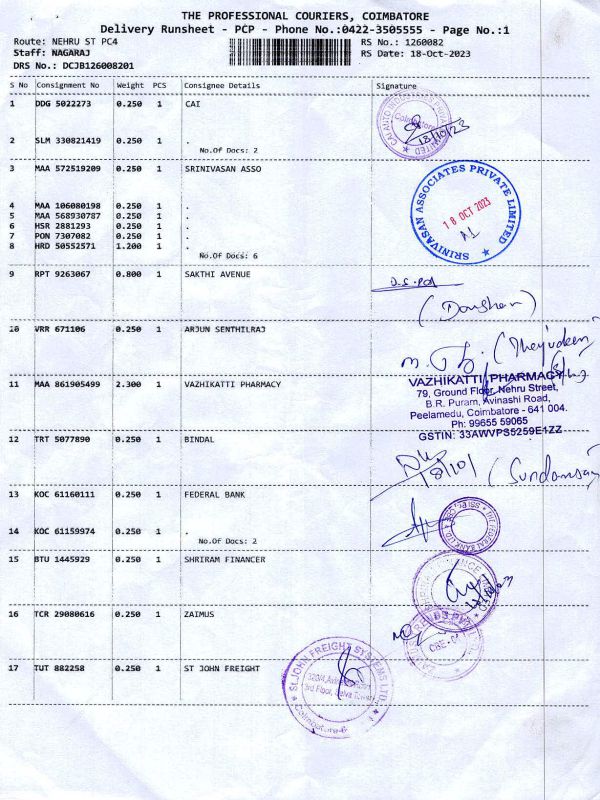 THE PROFESSIONAL COURIERS, COIMBATORE
Delivery Runsheet - PCP - Phone No.:0422-3505555 - Page No.:1
Route: NEHRU ST PC4 RS No.: 1260082
Staff: NAGARAJ RS Date: 18-Oct-2023
DRS No.: DCJB126008201
S No Consignment No Weight PCS Consignee Details Signature
1 DDG 5022273 0.250 1 CAI
Coimbatore
18/10/23
2 SLM 330821419 0.250 1 .
No.Of Docs: 2
3 MAA 572519209 0.250 1 SRINIVASAN ASSO
SRINIVASAN ASSOCIATES PRIVATE LIMITED
18 OCT 2023
4 MAA 106080198 0.250 1 .
5 MAA 568930787 0.250 1 .
6 HSR 2881293 0.250 1 .
7 PON 7307082 0.250 1 .
8 HRD 50552571 1.200 1 .
No.Of Docs: 6
9 RPT 9263067 0.800 1 SAKTHI AVENUE
10 VRR 671106 0.250 1 ARJUN SENTHILRAJ
11 MAA 861905499 2.300 1 VAZHIKATTI PHARMACY
VAZHIKATTI PHARMACY
79, Ground Floor, Nehru Street,
B.R. Puram, Avinashi Road,
Peelamedu, Coimbatore - 641 004.
Ph: 99655 59065
GSTIN: 33AWVPS5259E1ZZ
12 TRT 5077890 0.250 1 BINDAL
18/10/
13 KOC 61160111 0.250 1 FEDERAL BANK
THE FEDERAL BANK LTD
14 KOC 61159974 0.250 1 .
No.Of Docs: 2
15 BTU 1445929 0.250 1 SHRIRAM FINANCER
16 TCR 29080616 0.250 1 ZAIMUS
17 TUT 882258 0.250 1 ST JOHN FREIGHT
ST.JOHN FREIGHT SYSTEMS LTD.
3rd Floor,
Coimbatore-6